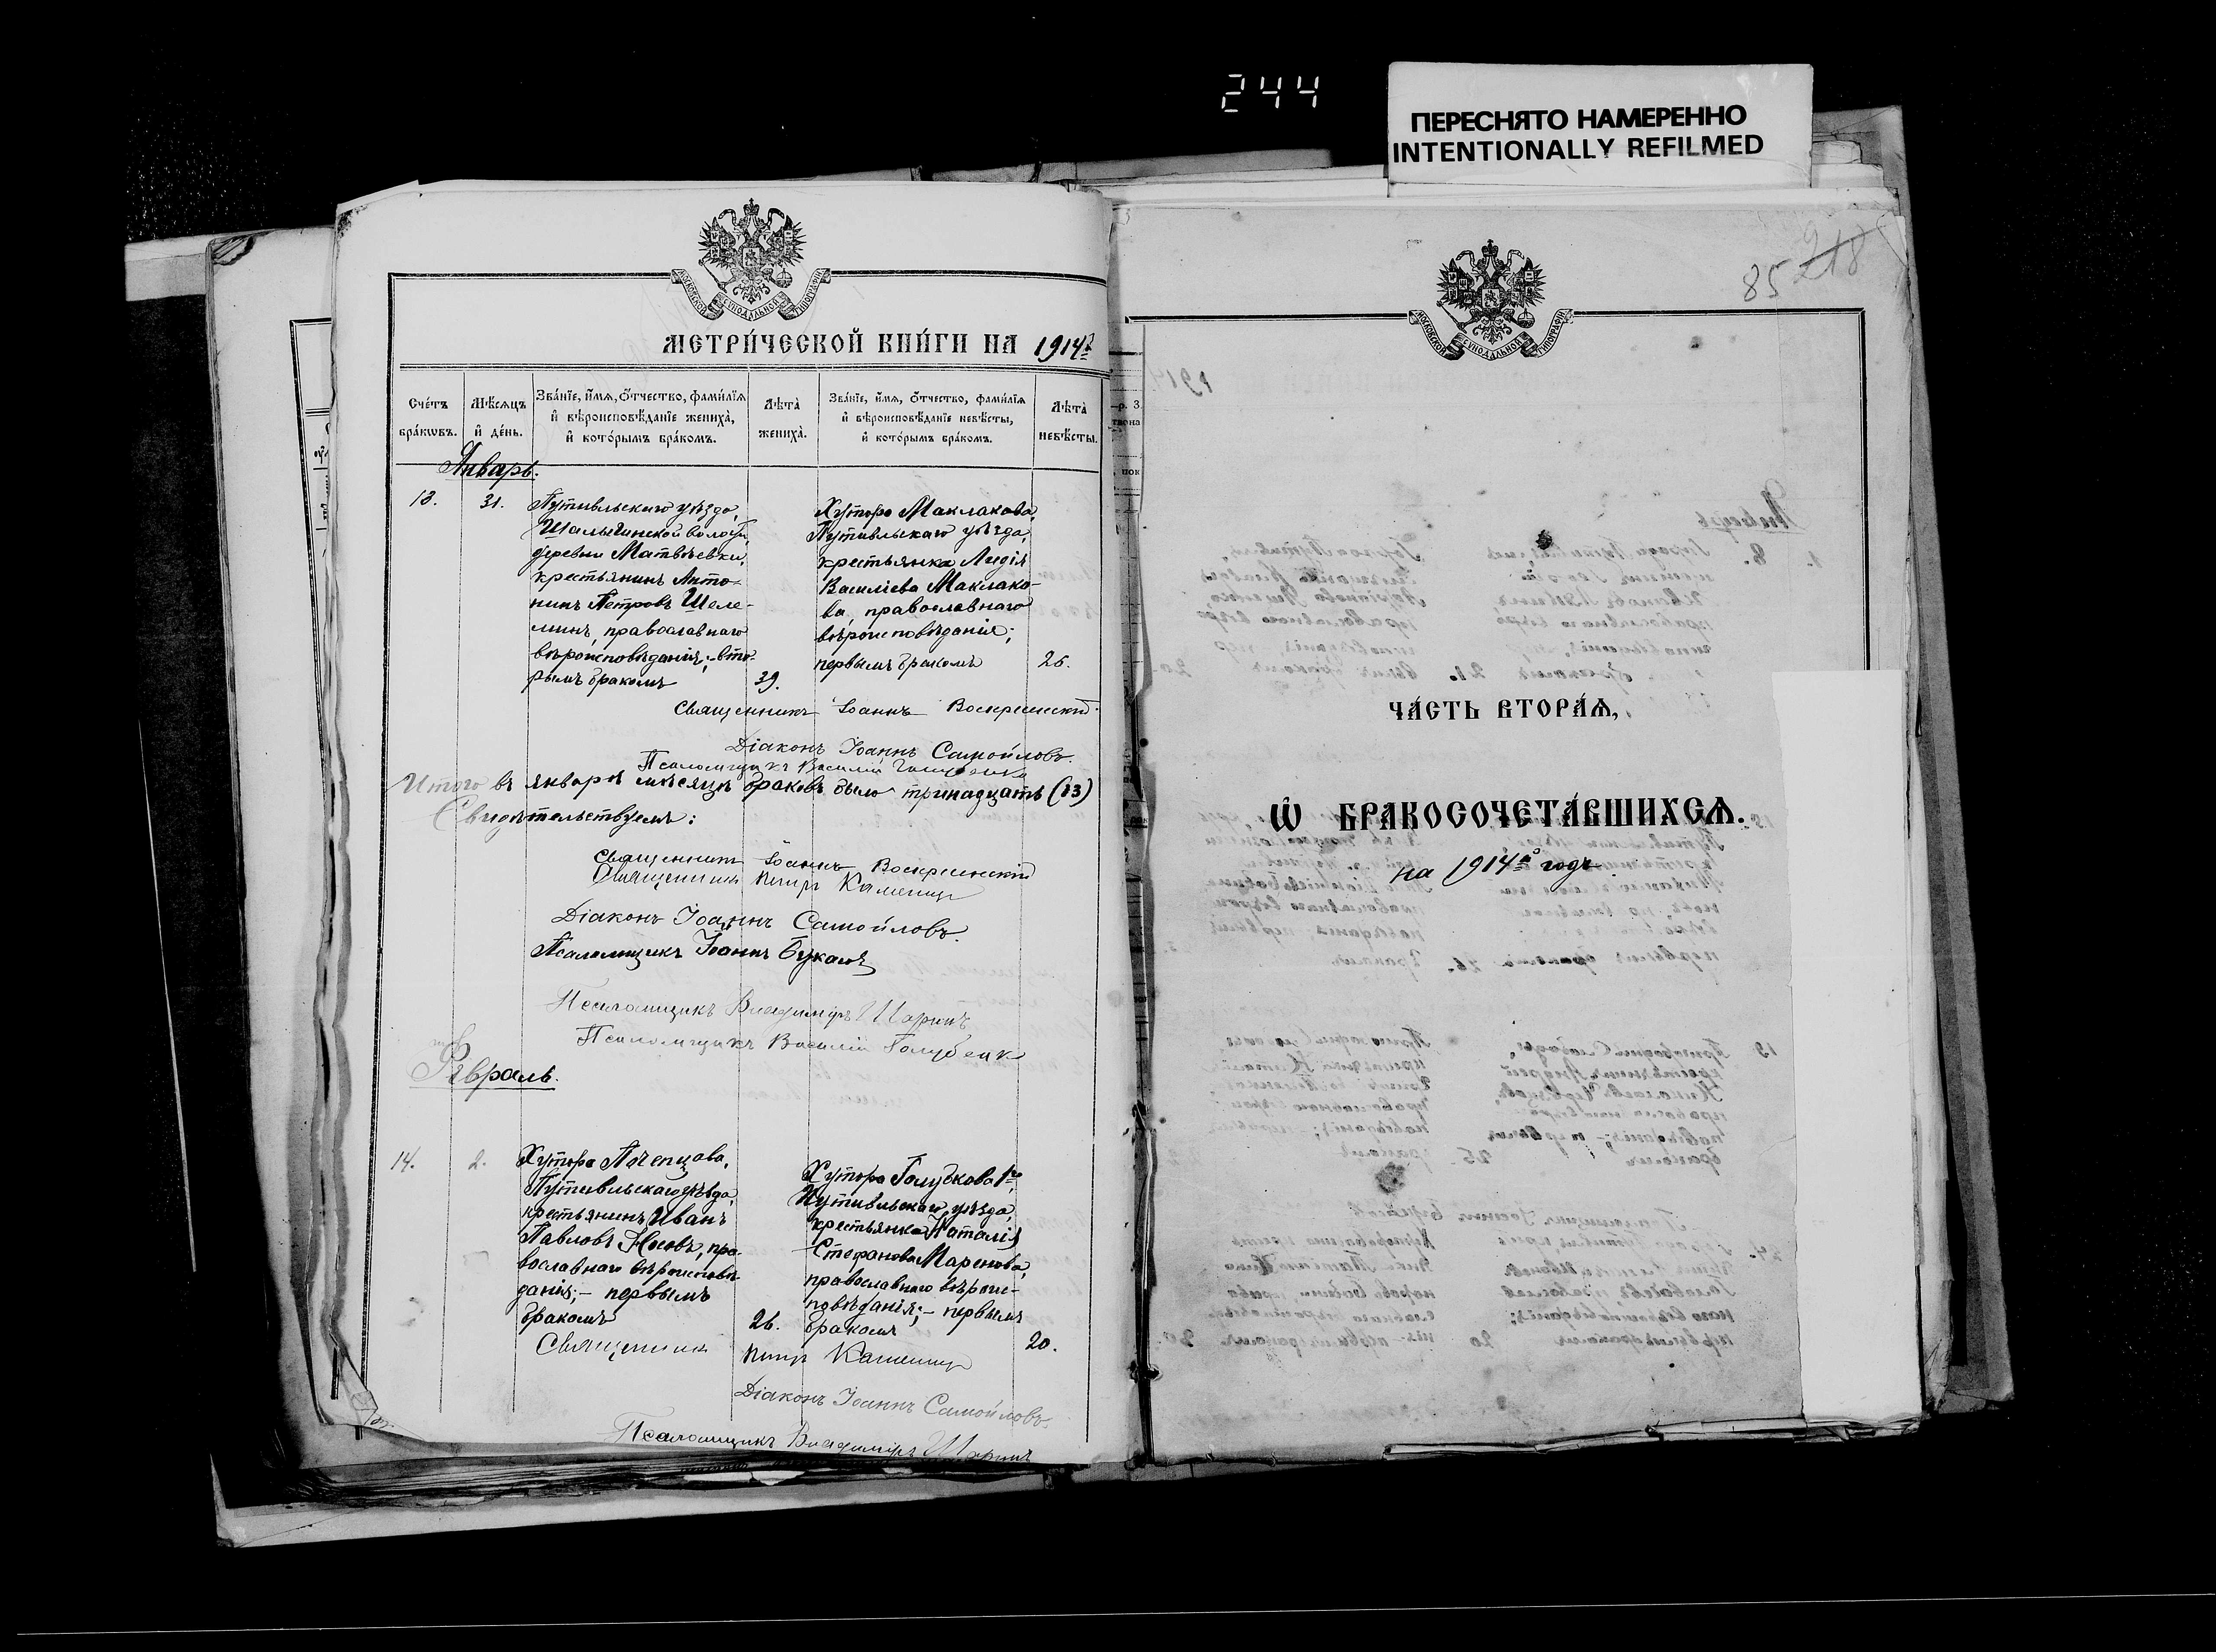 244
ПЕРЕСНЯТО НАМЕРЕННО
INTENTIONALLY REFILMED
МОСКОВСКОЙ СѴНОДАЛЬНОЙ ТИПОГРАФІИ
МЕТРИ́ЧЕСКОЙ КНИ́ГИ НА 1914 г.
Сче́тъ бра́кѡвъ.
Мѣ́сяцъ и҆ де́нь.
Зва́нїе, и҆́мѧ, ѻ҆́тчество, фами́лїѧ и҆ вѣроисповѣ́данїе жениха̀, и҆ кото́рымъ бра́комъ.
Лѣта̀ жениха̀.
Зва́нїе, и҆́мѧ, ѻ҆́тчество, фами́лїѧ и҆ вѣроисповѣ́данїе невѣ́сты, и҆ кото́рымъ бра́комъ.
Лѣта̀ невѣ́сты.
Январь.
13.
31.
Путивльскаго уѣзда,
Шалыгинской волости,
деревни Матвѣевки,
крестьянинъ Анто-
нинъ Петровъ Шеле-
минъ, православнаго
вѣроисповѣданія; - вто-
рымъ бракомъ
39.
Хутора Маклакова,
Путивльскаго уѣзда,
крестьянка Лидія
Василіева Маклако-
ва, православнаго
вѣроисповѣданія;
первымъ бракомъ
26.
Священникъ Іоаннъ Воскресенскій.
Діаконъ Іоаннъ Самойловъ.
Псаломщикъ Василій Голубенко
Итого въ январѣ мѣсяцѣ браковъ было тринадцать (13)
Свидѣтельствуемъ:
Священникъ Іоаннъ Воскресенскій
Священникъ Петръ
Діаконъ Іоаннъ Самойловъ.
Псаломщикъ Іоаннъ
Псаломщикъ Владиміръ Шаринъ
Псаломщикъ Василій Голубенк
Февраль.
14.
2.
Хутора Пачепцова,
Путивльскаго уѣзда,
крестьянинъ Иванъ
Павловъ Носовъ, пра-
вославнаго вѣроисповѣ-
данія; - первымъ
бракомъ
26.
Хутора Голубкова 1го,
Путивльскаго уѣзда,
крестьянка Наталія
Стефанова Маренова,
православнаго вѣроис-
повѣданія; - первымъ
бракомъ
20.
Священникъ Петръ
Діаконъ Іоаннъ Самойловъ.
Псаломщикъ Владиміръ Шаринъ
85 218
МОСКОВСКОЙ СѴНОДАЛЬНОЙ ТИПОГРАФІИ
ЧА́СТЬ ВТОРА́Ѧ,
Ѡ҆ БРАКОСОЧЕТА́ВШИХСѦ.
на 1914й годъ.